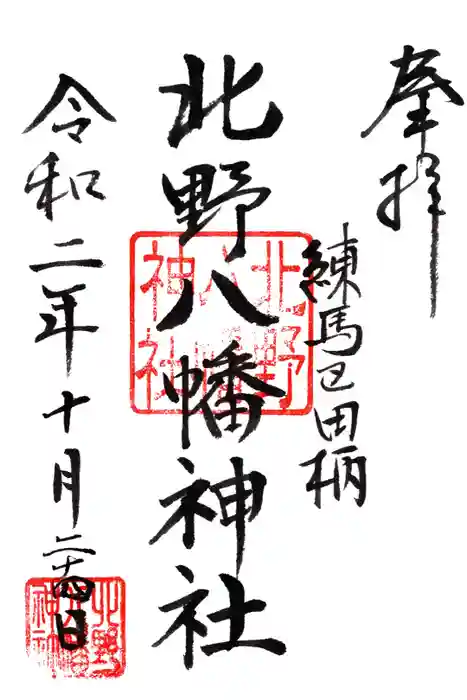 奉拝
練馬区田柄
北野八幡神社
北野八幡神社
令和二年十月二十四日
北野八幡神社